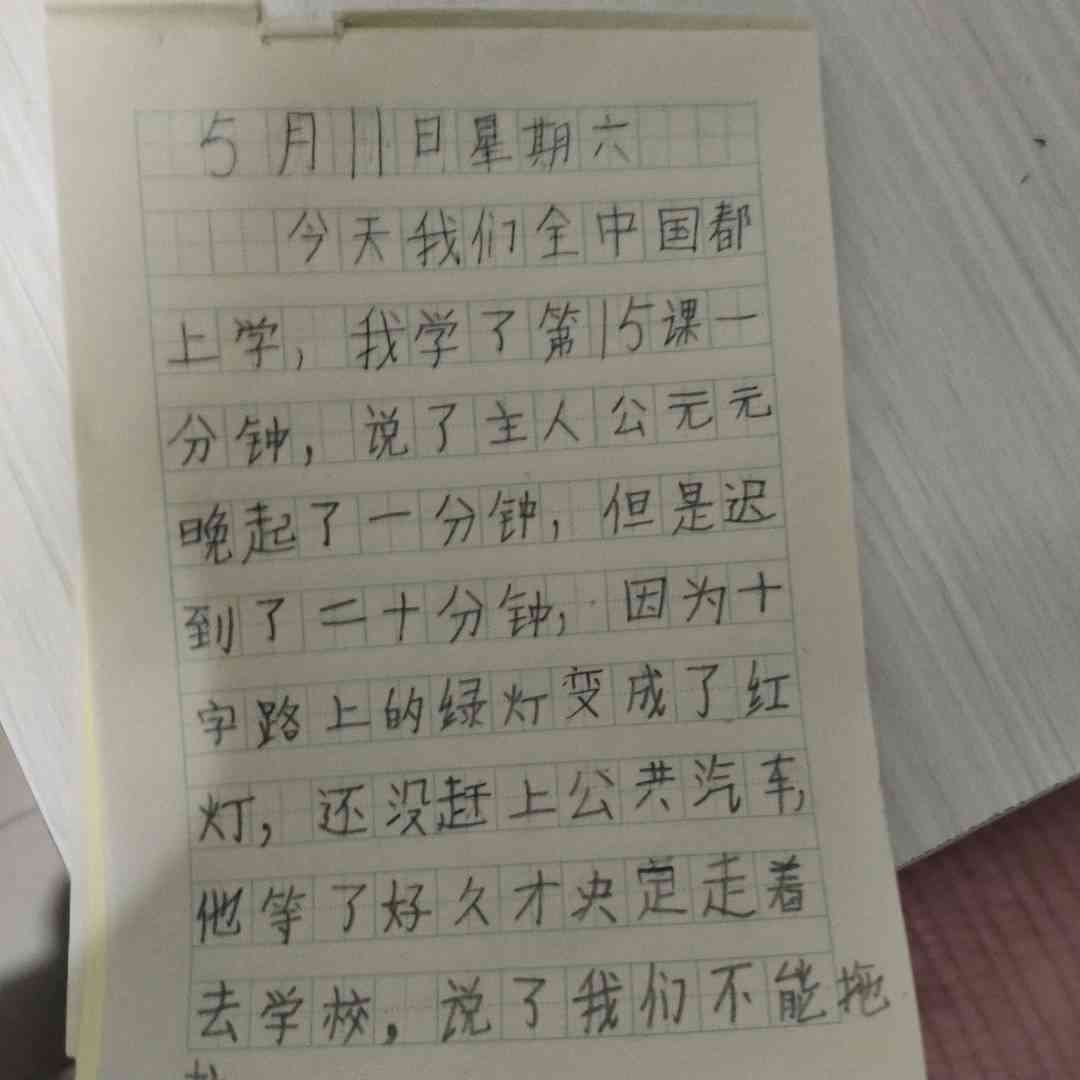 5月11日星期六
今天我们全中国都
上学，我学了第15课一
分钟，说了主人公元元
晚起了一分钟，但是迟
到了二十分钟，因为十
字路上的绿灯变成了红
灯，还没赶上公共汽车，
他等了好久才央定走着
去学校，说了我们不能拖